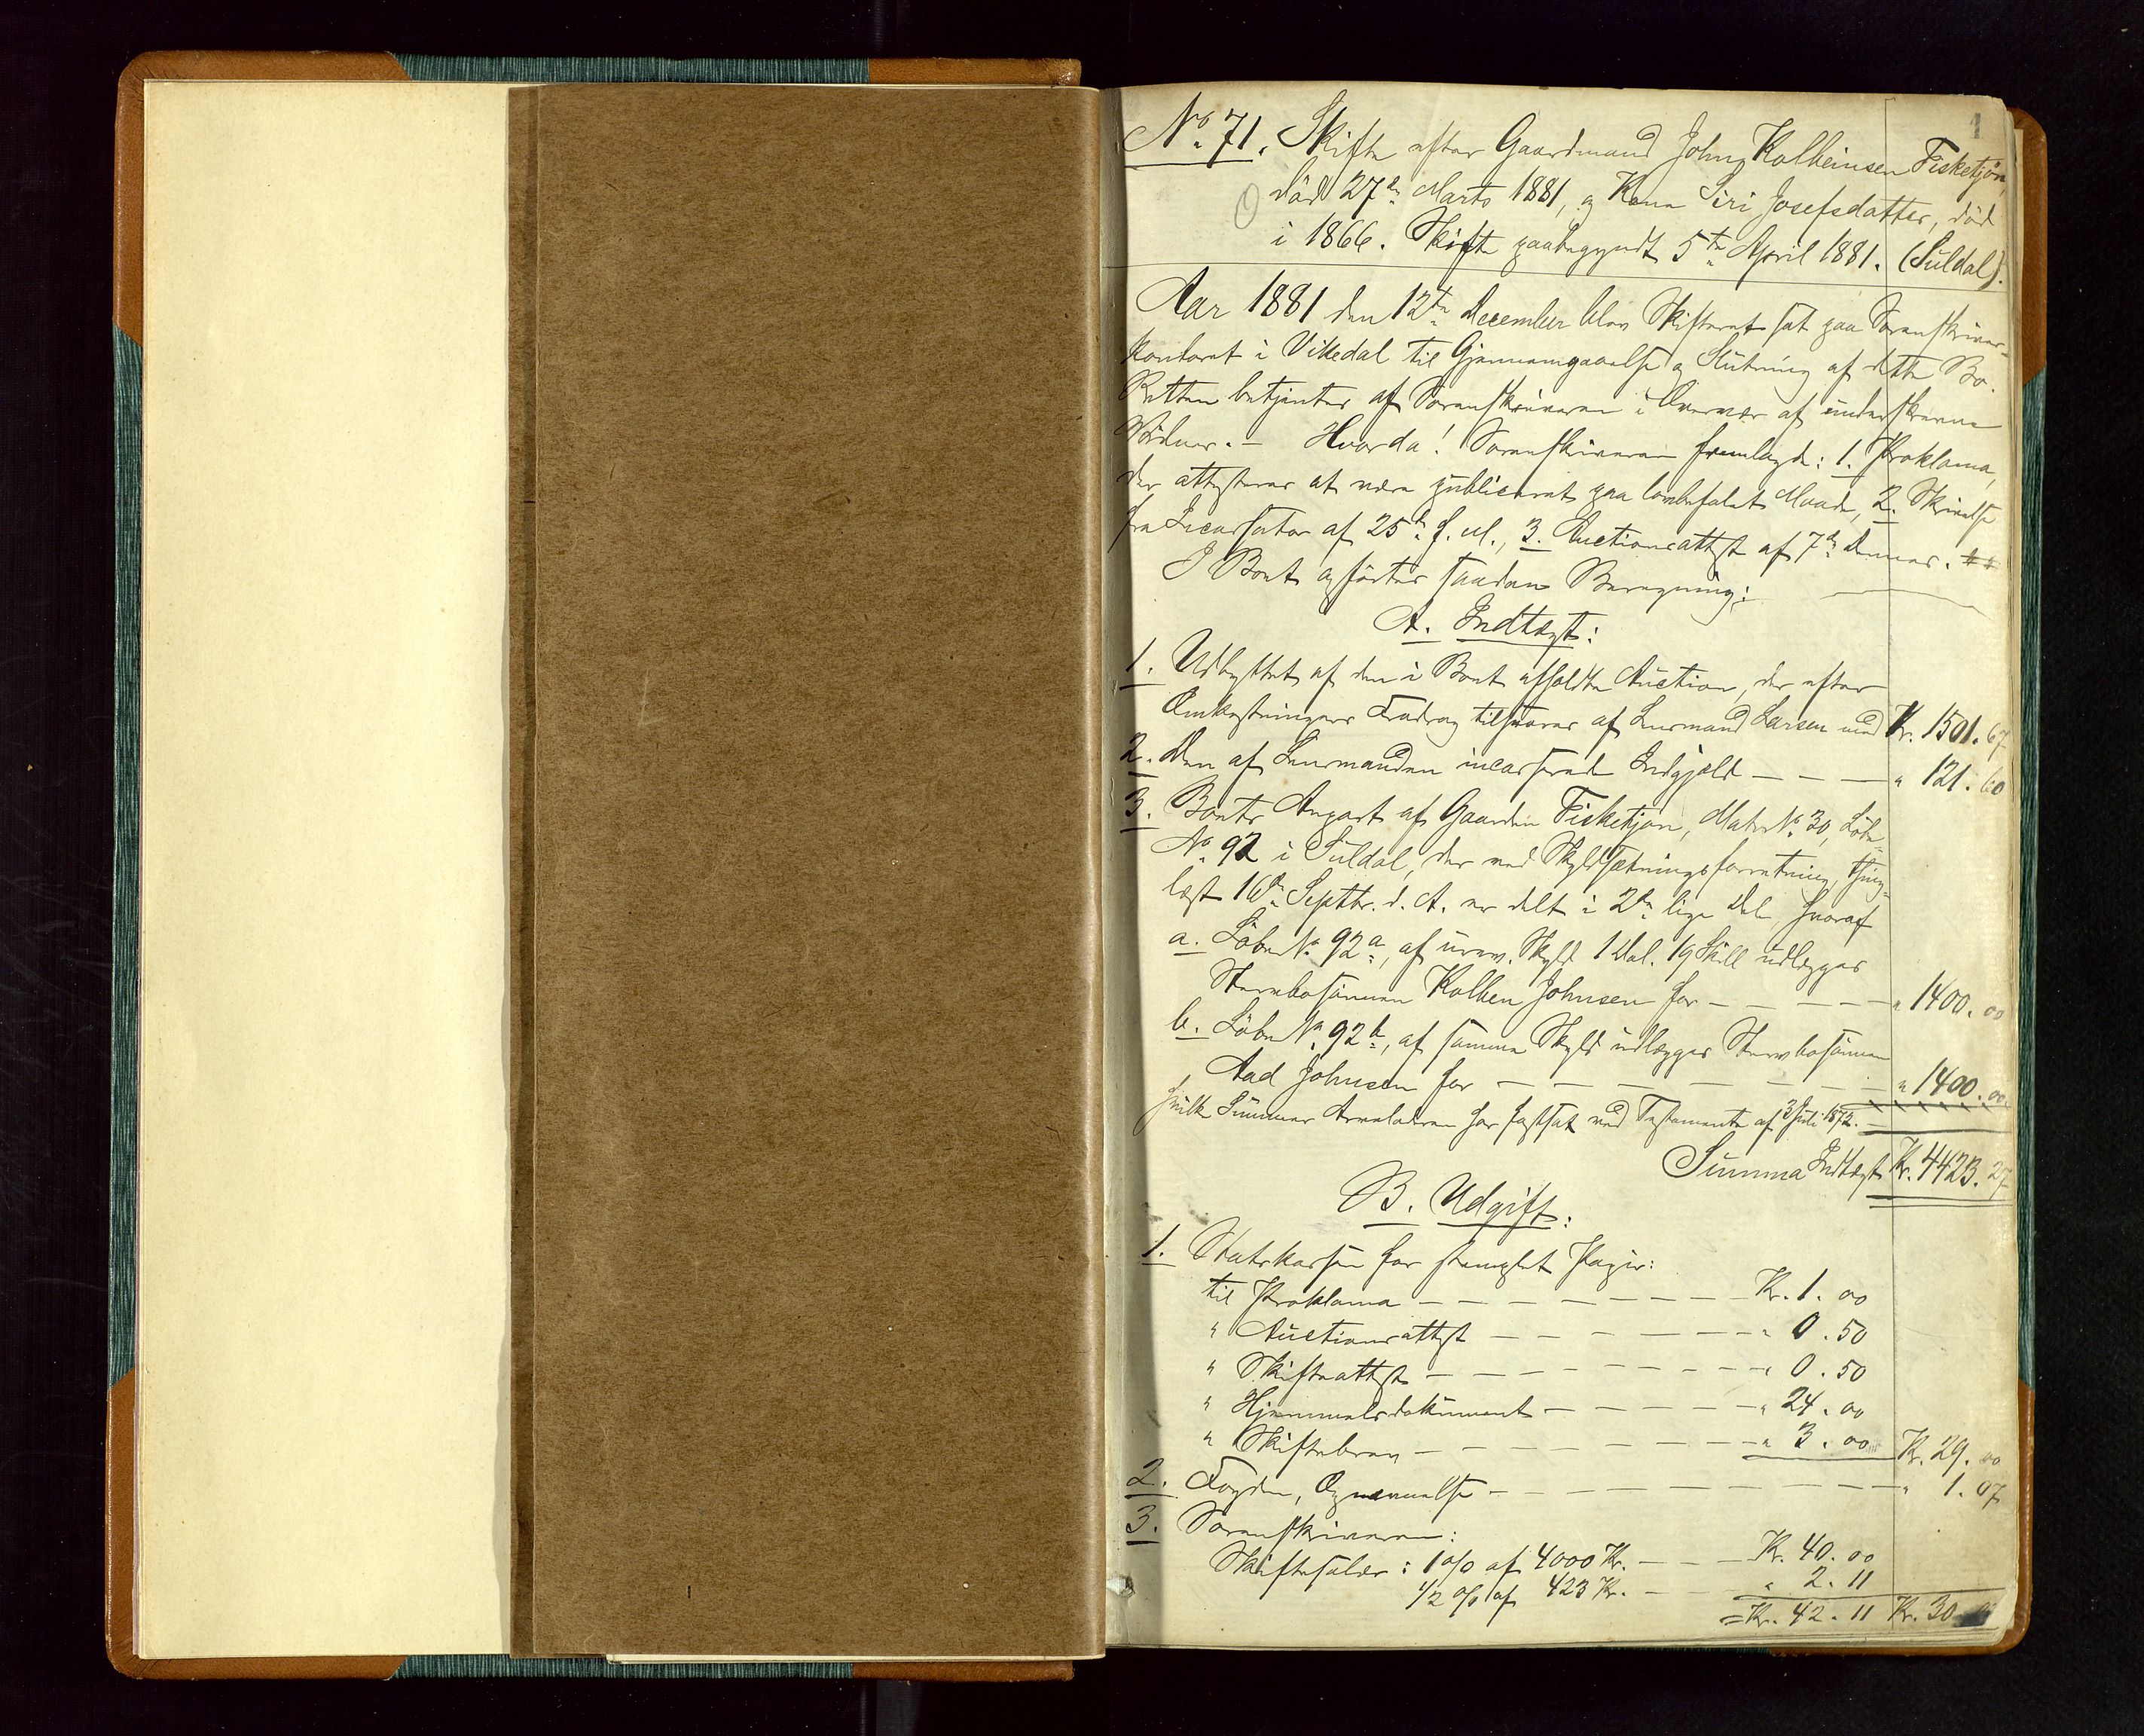 1
No. 71. Skifte efter Gaardmand John Kolbeinsen Fisketjøn,
død 27de Marts 1881, og Kone Siri Josefsdatter, død
i 1866. Skifte paabegyndt 5te April 1881. (Suldal).
Aar 1881 den 12te December blev Skifteret sat paa Sorenskriver-
kontoret i Vikedal til Gjennemgaaelse og Slutning af dette Bo.
Retten betjentes af Sorenskriveren i Overvær af underskrevne
Vidner. – Hvorda! Sorenskriveren fremlagde: 1. Proklama,
der attesteres at være publiceret paa lovbefalet Maade, 2. Skrivelse
fra Incassator af 25de f. M., 3. Auctionsattest af 7de Dennes.
I Boet opførtes saadan Beregning:
A. Indtægt:
1. Udbyttet af den i Boet afholdte Auction, der efter
Omkostningers Fradrag tilsvares af Lensmand Larsen med Kr. 1501. 67
2. Den af Lensmanden incasserede Indgjæld – – – " 121. 60
3. Boets Anpart af Gaarden Fisketjøn, Matr No. 30, Løbe-
No. 92 i Suldal, der ved Skyldsætningsforretning, thing-
læst 16de Septbr. d. A. er delt i 2de lige Dele, hvoraf
a. Løbe No. 92a, af urev. Skyld 1 Dal. 19 Skill udlægges
Stervbosønnen Kolben Johnsen for – – – – – " 1400. 00
b. Løbe No. 92b, af samme Skyld udlægges Stervbosønnen
Aad Johnsen for – – – – – – – " 1400. 00
hvilke Summer Arveladeren har fastsat ved Testamente af 3 Juli 1872. –
Summa Indtægt Kr. 4423. 27
B. Udgift:
1. Statskassen for stemplet Papir:
til Proklama – – – – – – – – Kr. 1. 00
" Auctionsattest – – – – – – – " 0. 50
" Skifteattest – – – – – – – – " 0. 50
" Hjemmelsdokument – – – – – " 24. 00
" Skiftebrev – – – – – – – – " 3. 00 Kr. 29. 00
2. Fogden, Opnævnelse – – – – – – – – – – " 1. 07
3. Sorenskriveren:
Skiftesalær: 1 o/o af 4000 Kr. – – – Kr. 40. 00
1/2 o/o af 423 Kr. – – " 2. 11
= Kr. 42. 11 Kr. 30